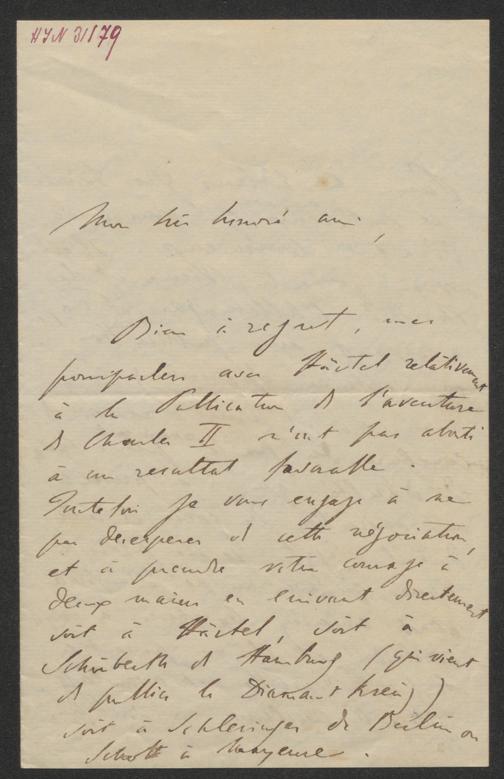 HIN 31179
Mon très honoré ami,
Bien à regret, mes
pourparlers avec Härtel relativement
à la Publication de l'aventure
de Charles II n'ont pas abouti
à un resultat favorable.
Toutefois je vous engage à ne
pas desesperer de cette négociation,
et à prendre votre courage à
deux mains en écrivant directement
soit à Härtel, soit à
Schuberth de Hamburg (qui vient
de publier le Diamant Kreuz)
soit à Schlesinger de Berlin ou
Schott à Mayence.